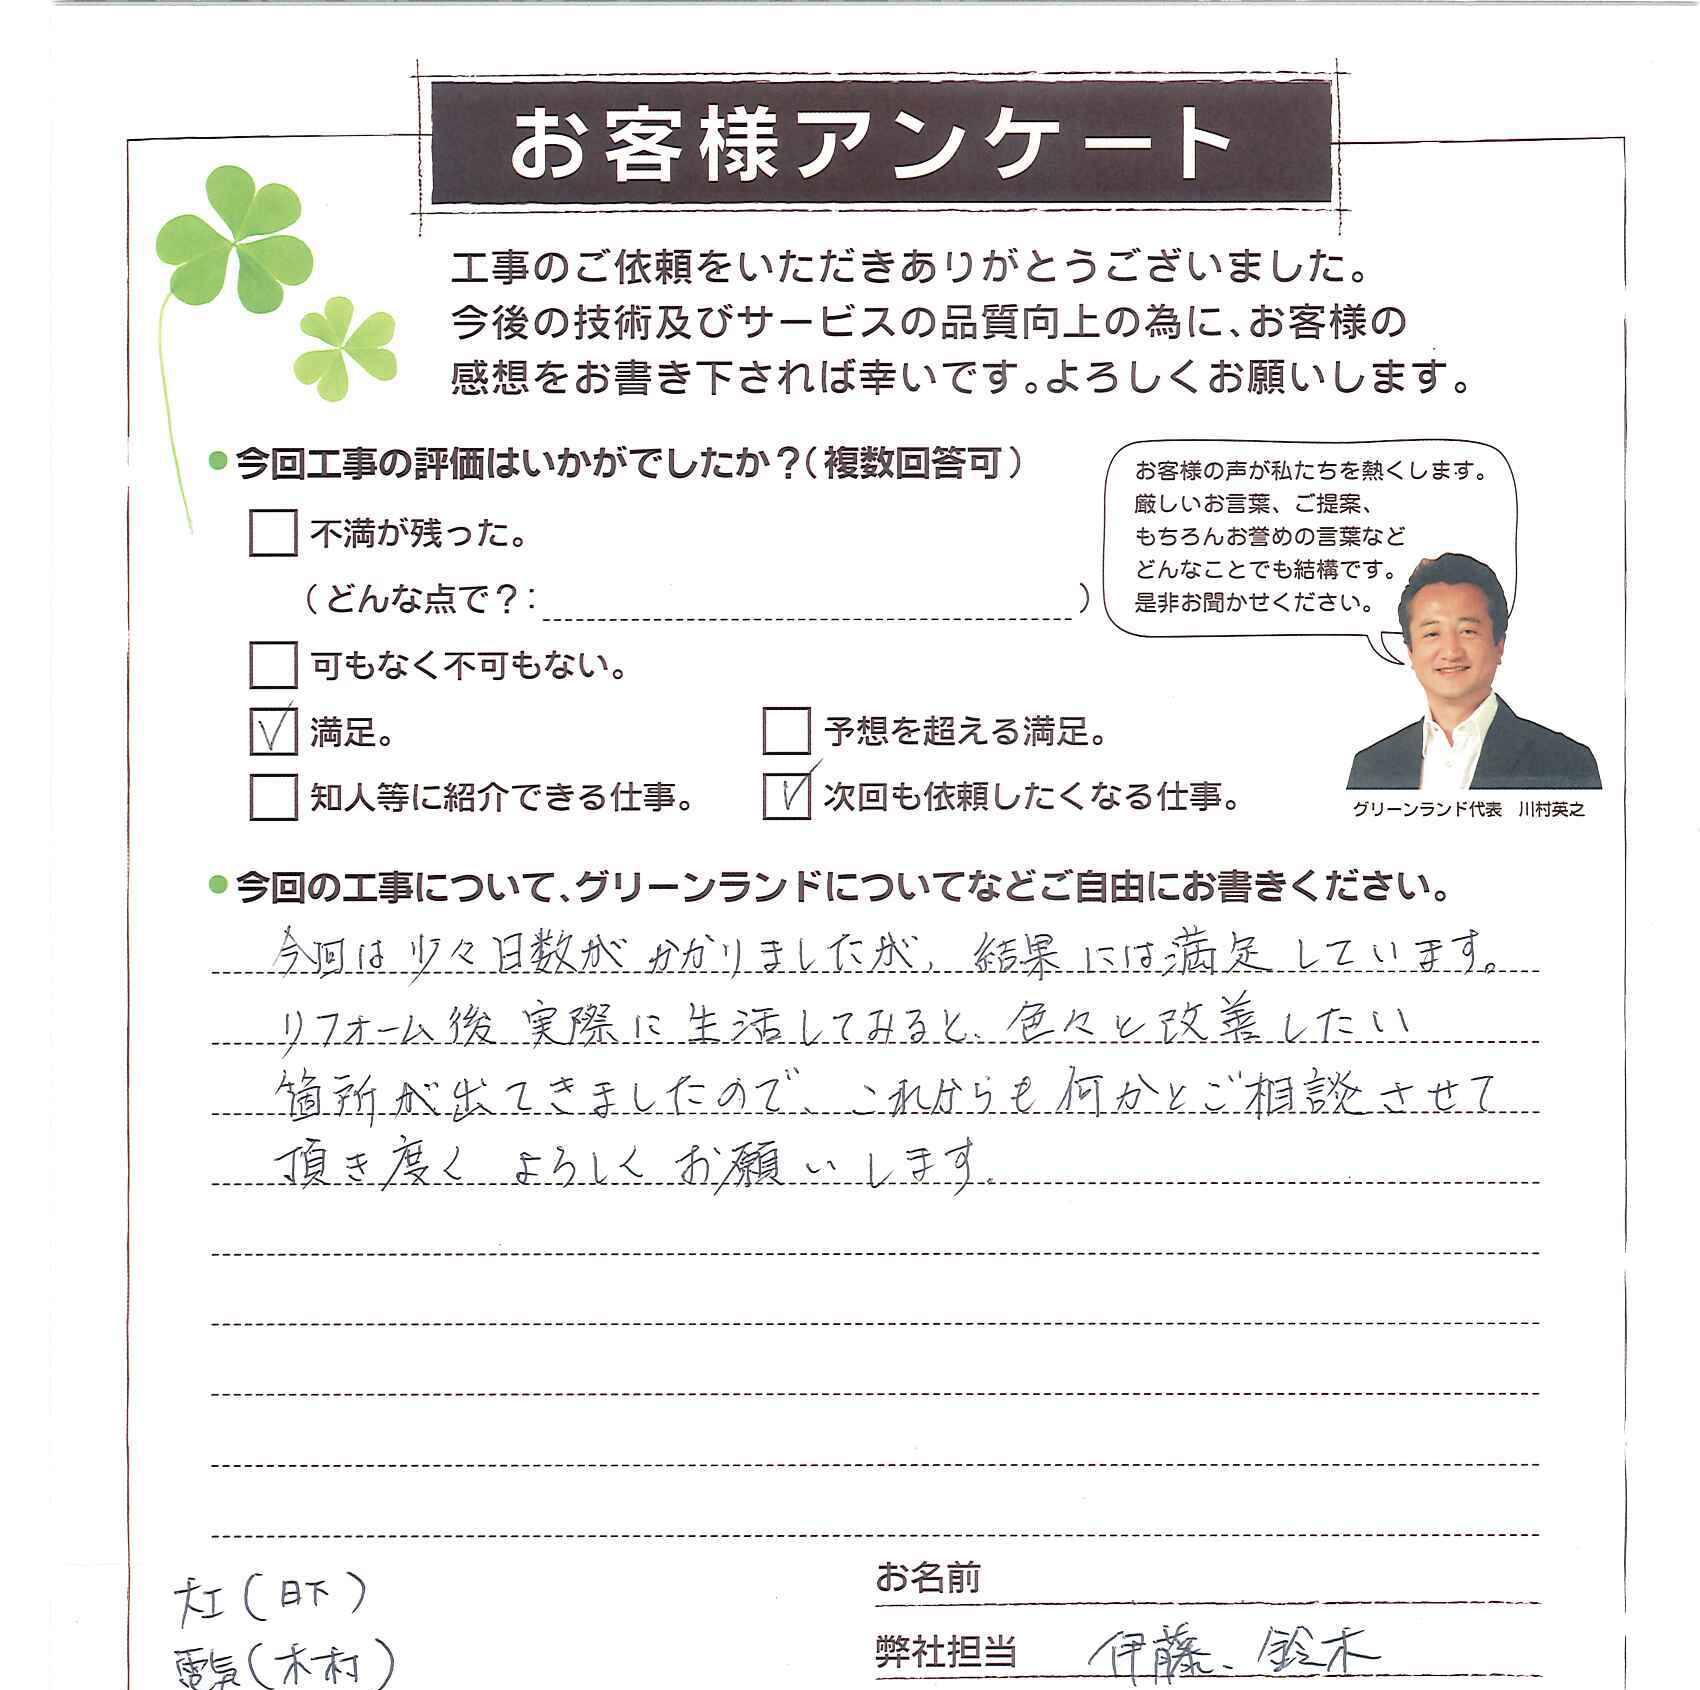 お客様アンケート
工事のご依頼をいただきありがとうございました。
今後の技術及びサービスの品質向上の為に、お客様の
感想をお書き下されば幸いです。よろしくお願いします。
●今回工事の評価はいかがでしたか？（複数回答可）
不満が残った。
（どんな点で？：　　　）
可もなく不可もない。
満足。
予想を超える満足。
知人等に紹介できる仕事。
次回も依頼したくなる仕事。
お客様の声が私たちを熱くします。
厳しいお言葉、ご提案、
もちろんお誉めの言葉など
どんなことでも結構です。
是非お聞かせください。
グリーンランド代表　川村英之
●今回の工事について、グリーンランドについてなどご自由にお書きください。
今回は少々日数がかかりましたが、結果には満足しています。
リフォーム後実際に生活してみると、色々と改善したい
箇所が出てきましたので、これからも何かとご相談させて
頂き度くよろしくお願いします。
大工（日下）
電気（木村）
お名前
弊社担当　伊藤、鈴木